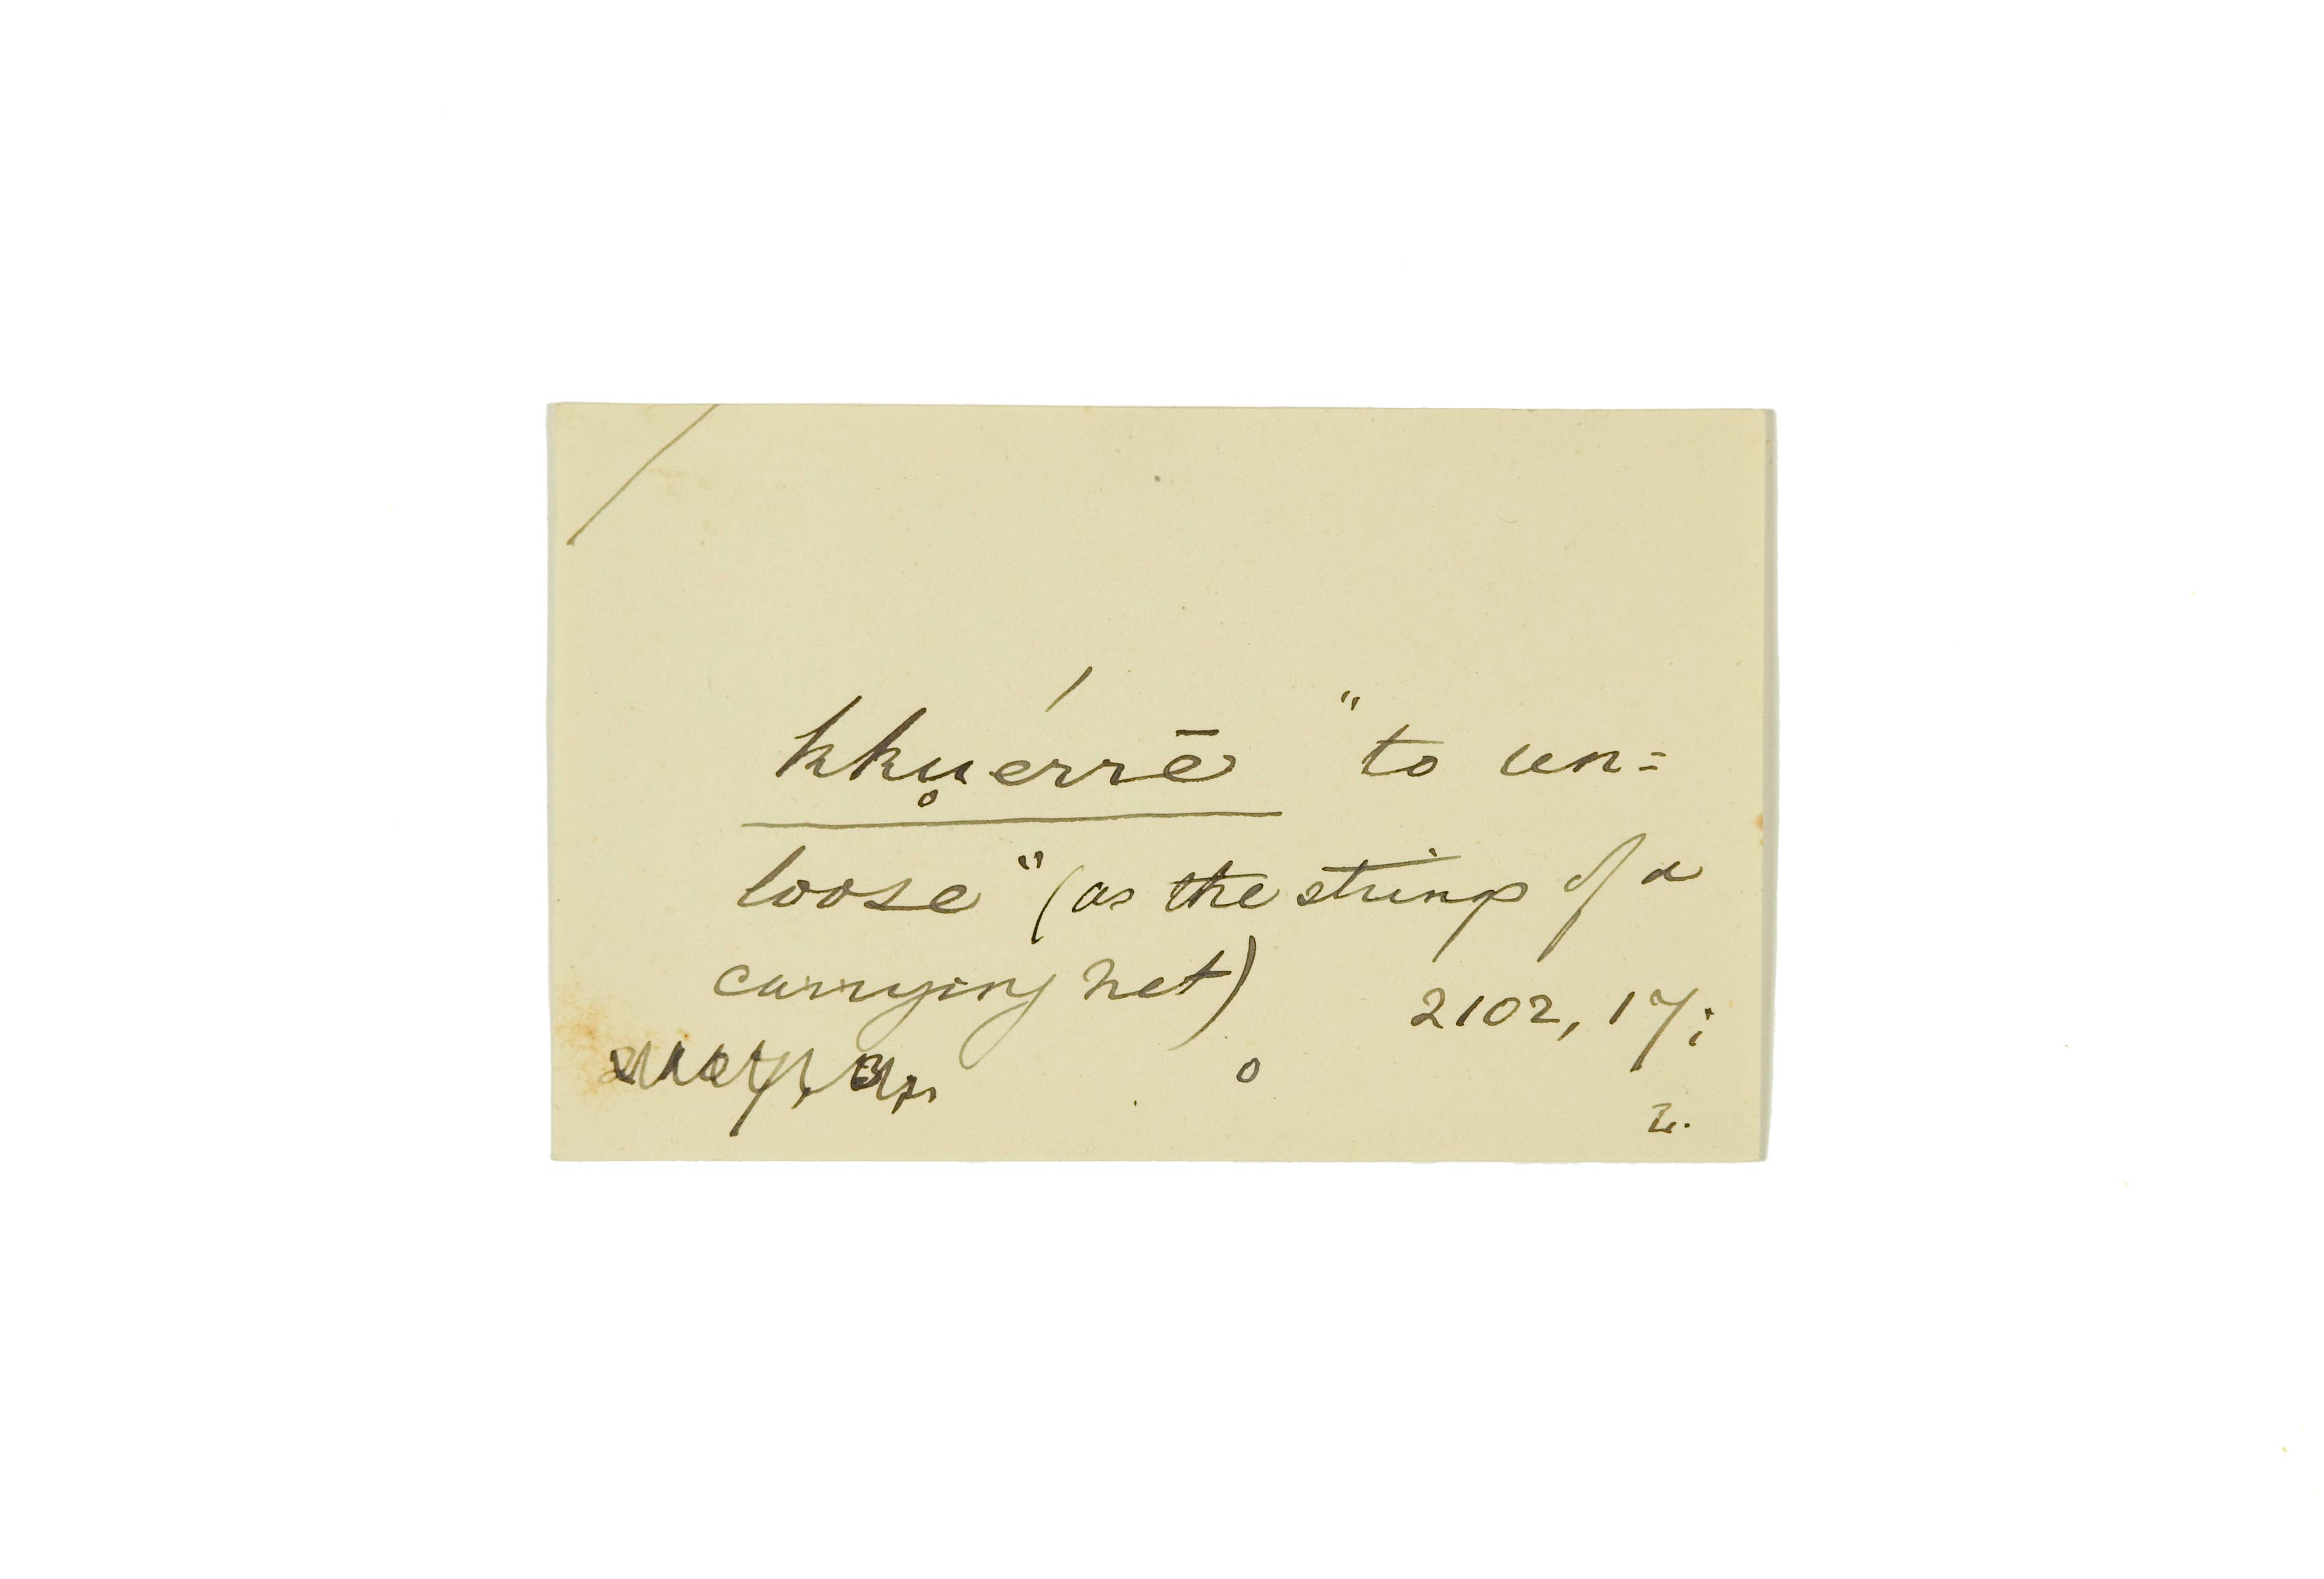 kku̥érrē "to un=
loose" (as the string of a
carrying net) 2102, 17;